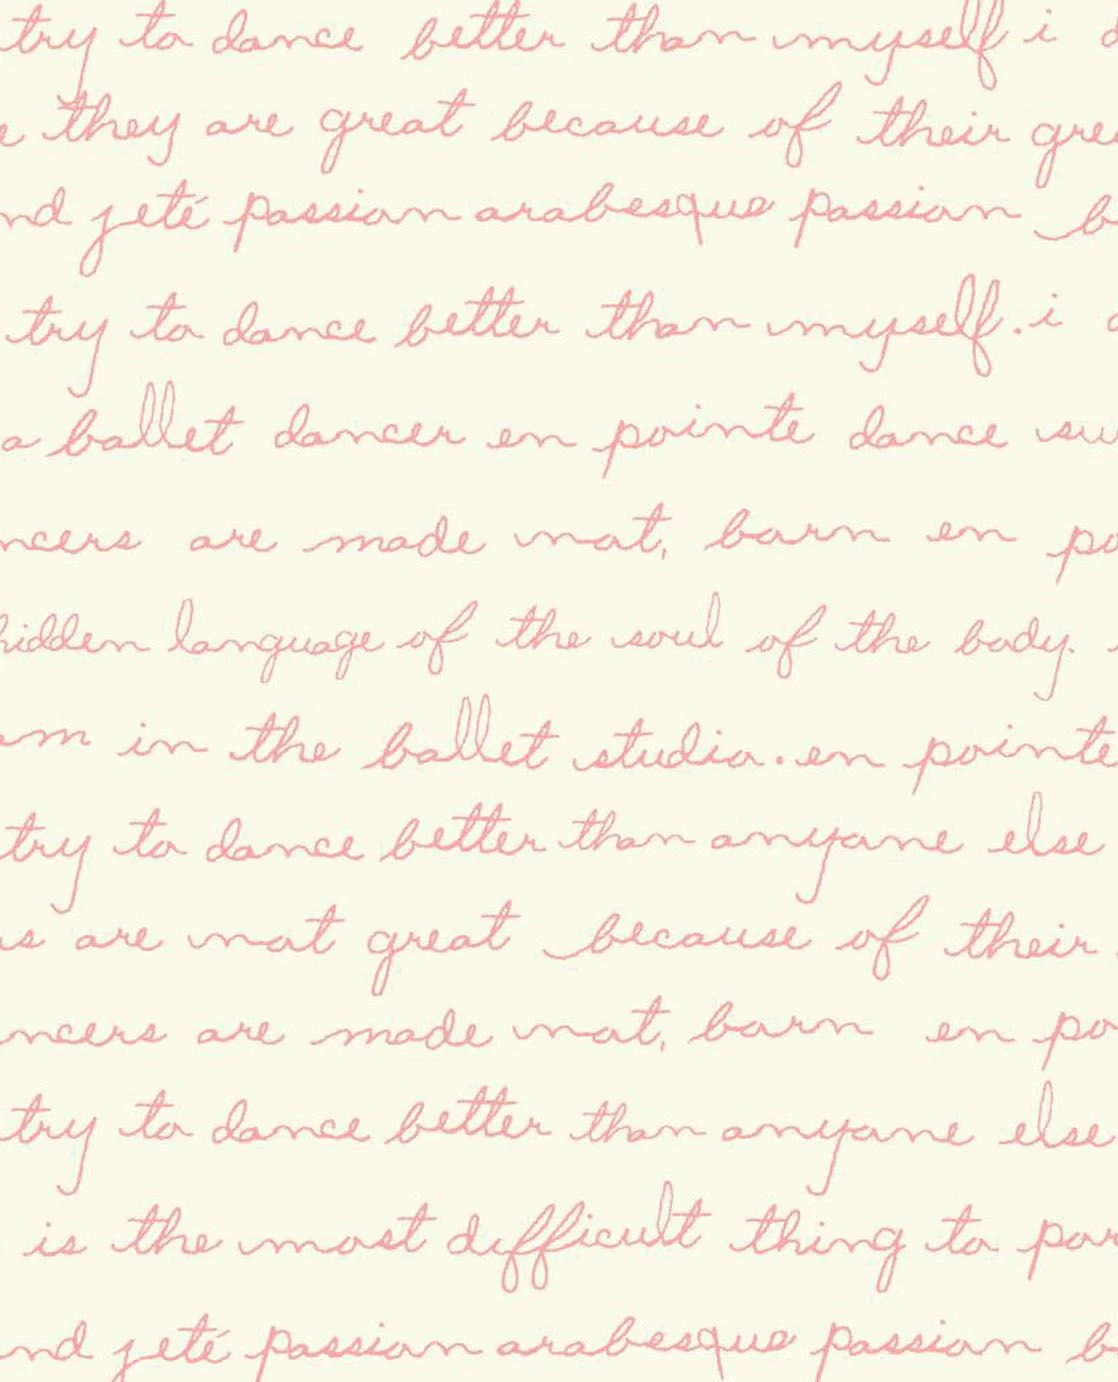 try to dance better than myself i d
e they are great because of their gre
nd jeté passion arabesque passion b
try to dance better than myself. i d
a ballet dancer en pointe dance su
ncers are made not, born en po
hidden language of the soul of the body.
om in the ballet studio. en pointe
try to dance better than anyone else
ns are not great because of their
ncers are made not, born en po
try to dance better than anyone else
is the most difficult thing to por
nd jeté passion arabesque passion b